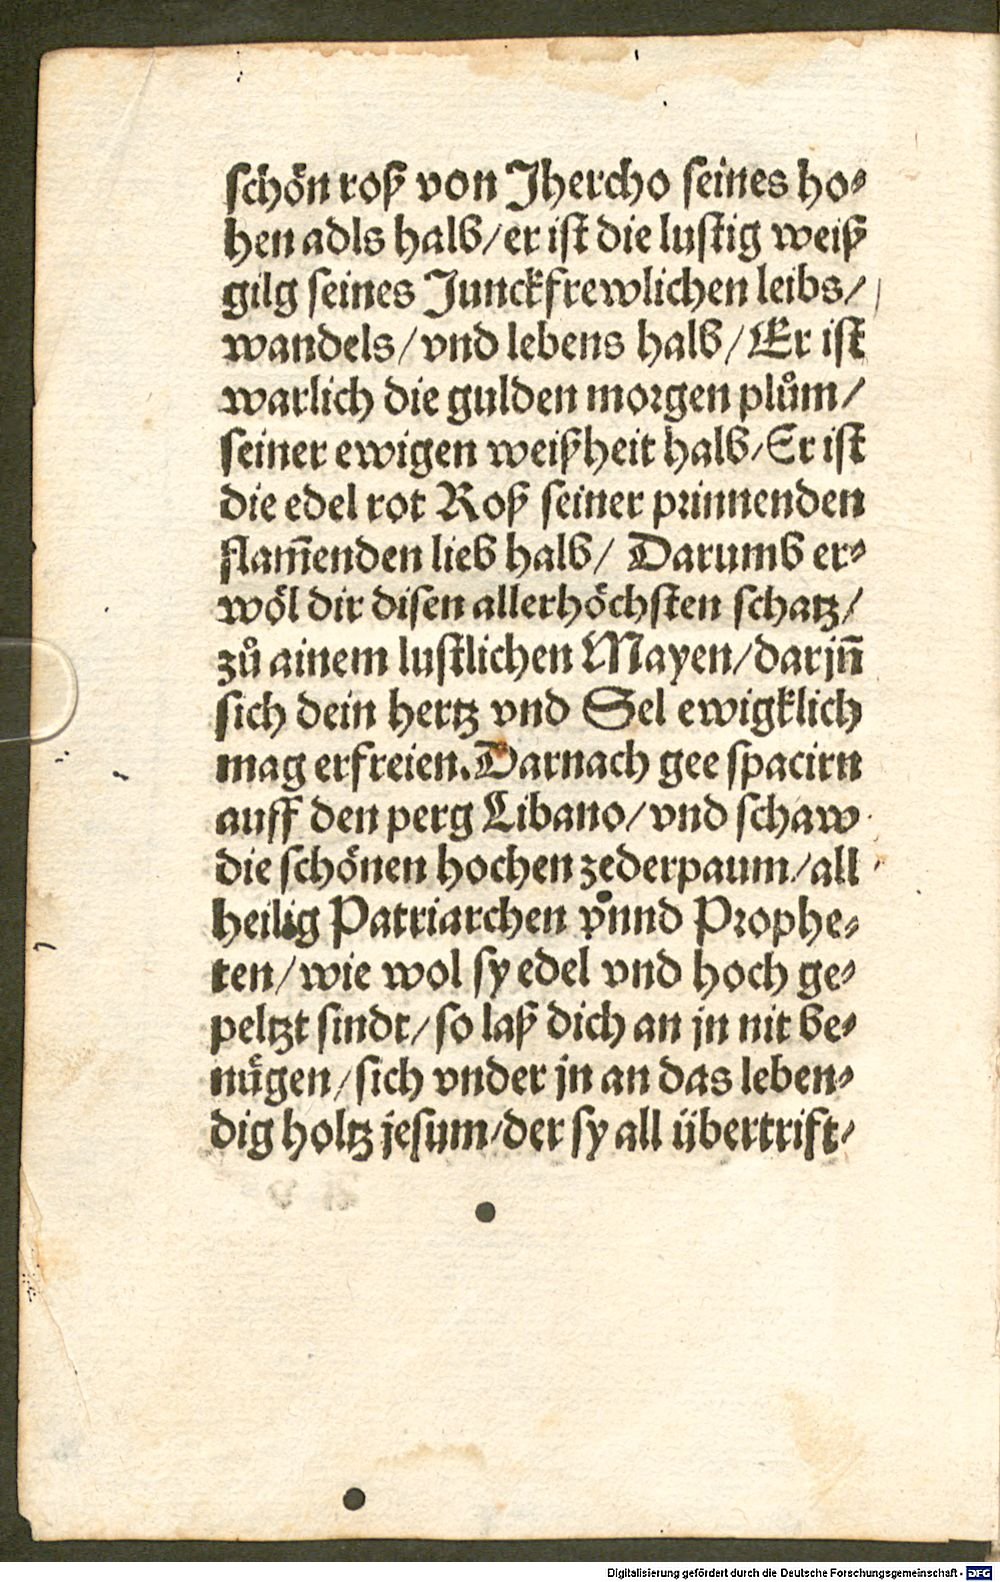 schön roß von Jhercho seines ho⸗
hen adls halb/er ist die lustig weiß
gilg seines Junckfrewlichen leibs/
wandels/vnd lebens halb/Er ist
warlich die gulden morgen plům/
seiner ewigen weißheit halb/Er ist
die edel rot Roß seiner prinnenden
flam̄enden lieb halb/ Darumb er⸗
wöl dir disen allerhöchsten schatz/
zů ainem lustlichen Mayen/darjnn̄
sich dein hertz vnd Sel ewigklich
mag erfreien. Darnach gee spacirn
auff den perg Libano/vnd schaw
die schönen hochen zederpaum/all
heilig Patriarchen vnnd Prophe⸗
ten/wie wol sy edel vnd hoch ge⸗
peltzt sindt/so laß dich an jn nit be⸗
nuͤgen/sich vnder jn an das leben⸗
dig holtz jesum/der sy all übertrift⸗
Digitalisierung gefördert durch die Deutsche Forschungsgemeinschaft - DFG